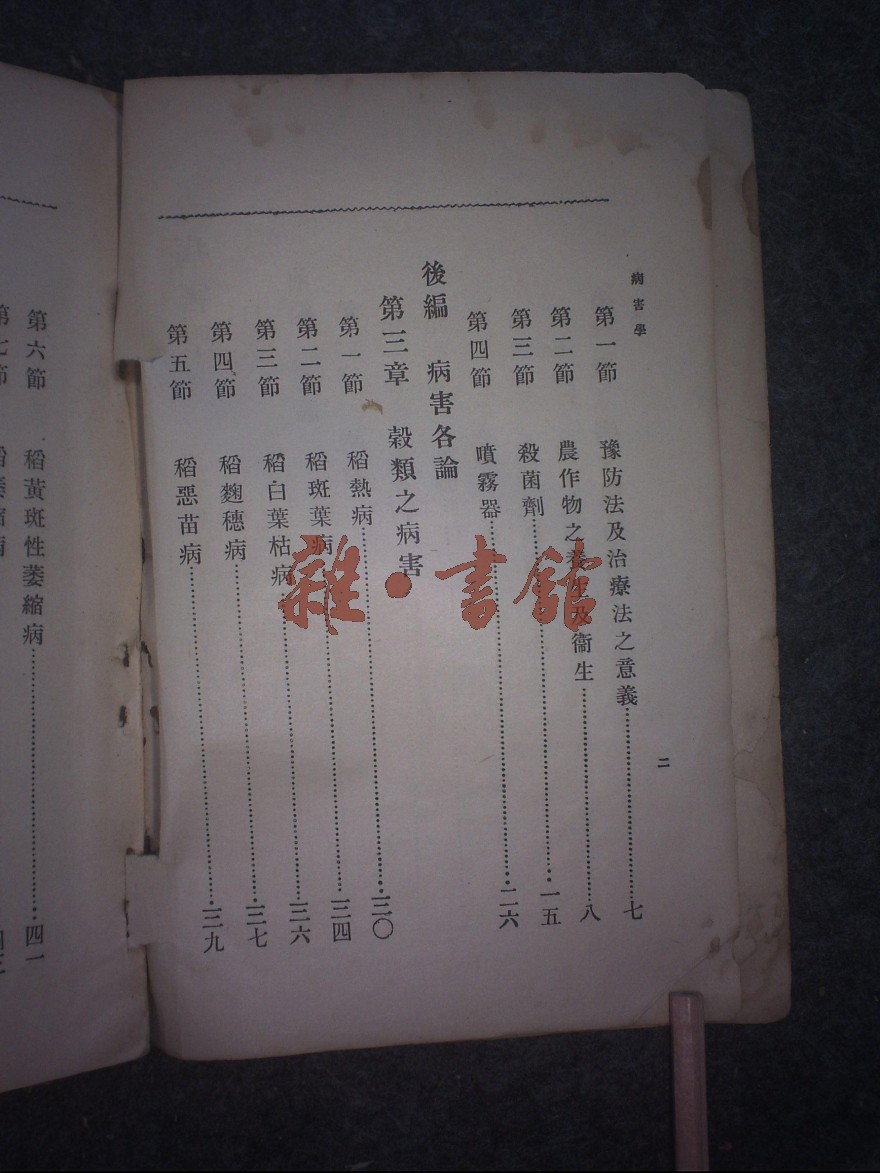 病害學
二
第一節 豫防法及治療法之意義……七
第二節 農作物之養生及衞生……八
第三節 殺菌劑……一五
第四節 噴霧器……二六
後編 病害各論
第三章 穀類之病害
第一節 稻熱病……三〇
第二節 稻斑葉病……三四
第三節 稻白葉枯病……三六
第四節 稻麴穗病……三七
第五節 稻惡苗病……三九
第六節 稻黃斑性萎縮病……四一
雜·書館